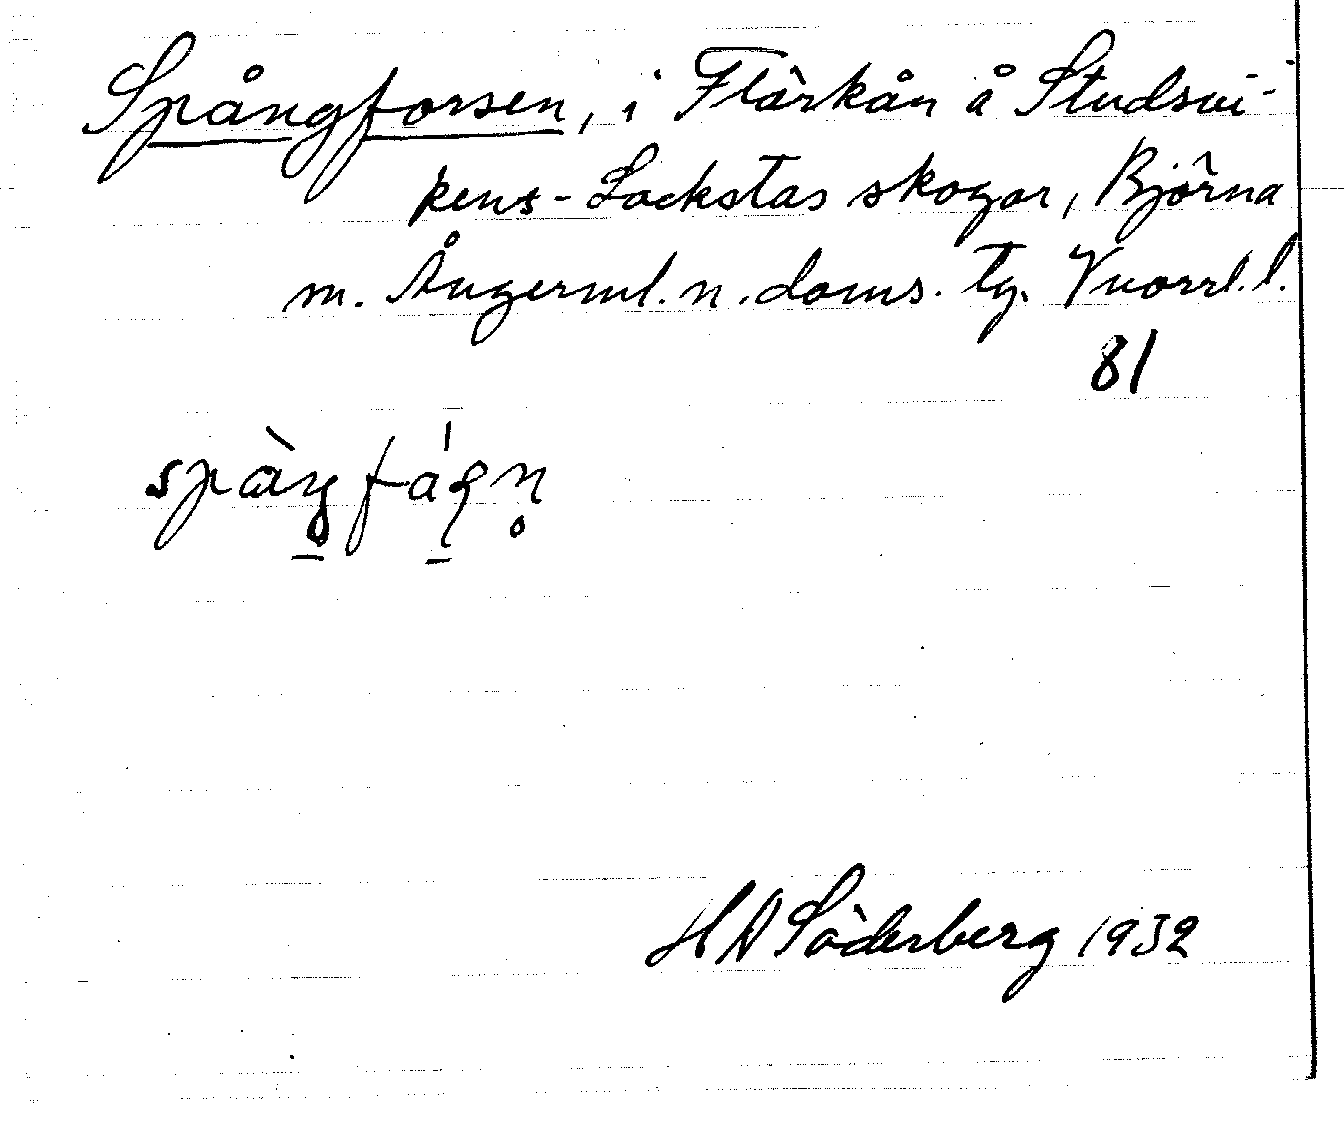 Spångforsen, i Flärkån å Studsvi-
kens-Lockstas skogar, Björna
m. Ångerml. n. doms. tg. Vnorrl. l.
81
spàŋfáʂn̥
H A Söderberg 1932